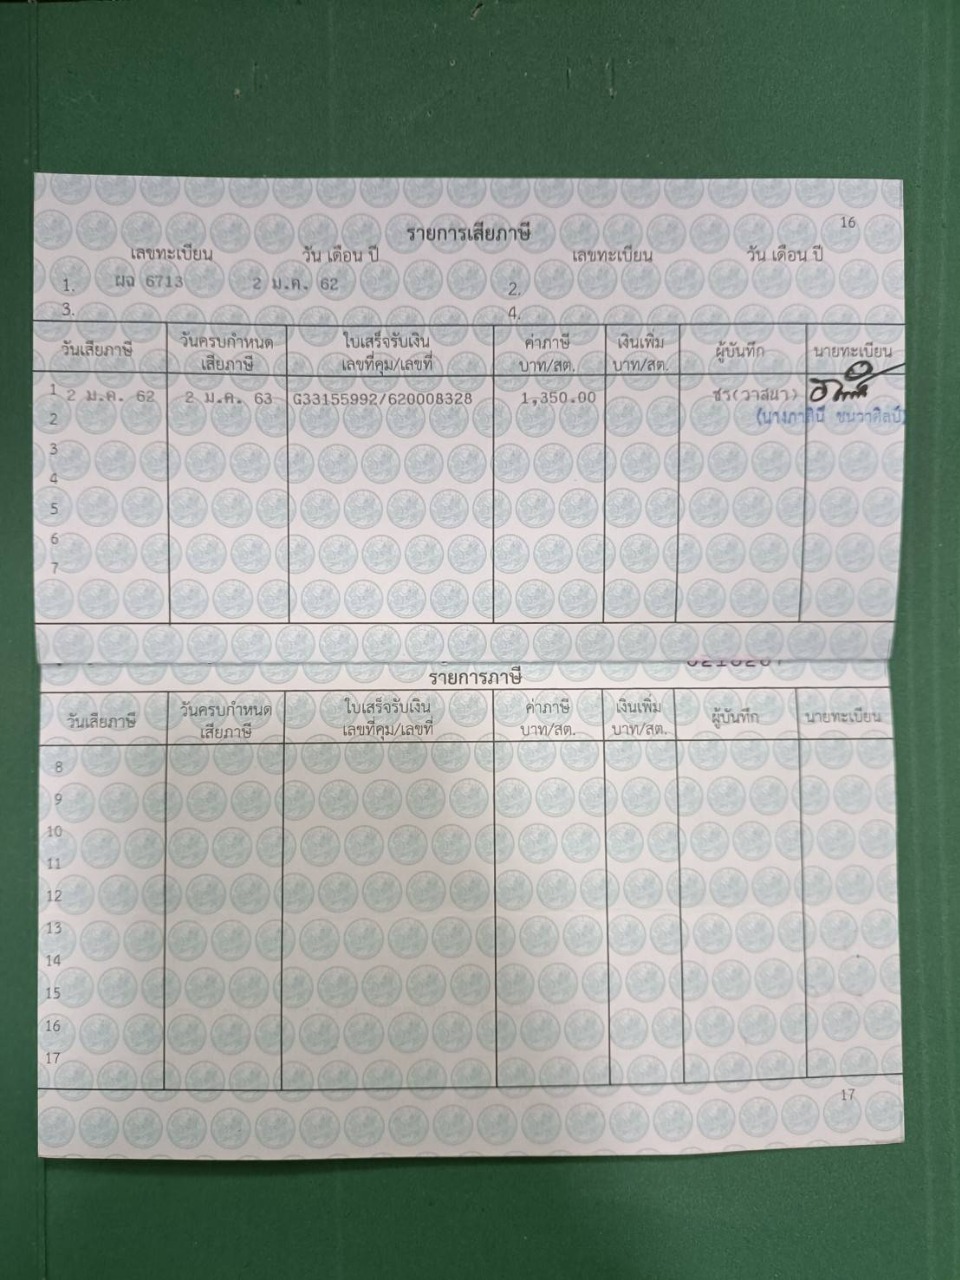 16
รายการเสียภาษี
เลขทะเบียน วัน เดือน ปี เลขทะเบียน วัน เดือน ปี
1. ผฉ 6713 2 ม.ค. 62 2.
3. 4.
วันเสียภาษี วันครบกำหนด เสียภาษี ใบเสร็จรับเงิน เลขที่คุม/เลขที่ ค่าภาษี บาท/สต. เงินเพิ่ม บาท/สต. ผู้บันทึก นายทะเบียน
1 2 ม.ค. 62 2 ม.ค. 63 G33155992/620008328 1,350.00 ชร(วาสนา)
2 (นางภาคินี ชนวาศิลป์)
3
4
5
6
7
รายการภาษี
วันเสียภาษี วันครบกำหนด เสียภาษี ใบเสร็จรับเงิน เลขที่คุม/เลขที่ ค่าภาษี บาท/สต. เงินเพิ่ม บาท/สต. ผู้บันทึก นายทะเบียน
8
9
10
11
12
13
14
15
16
17
17